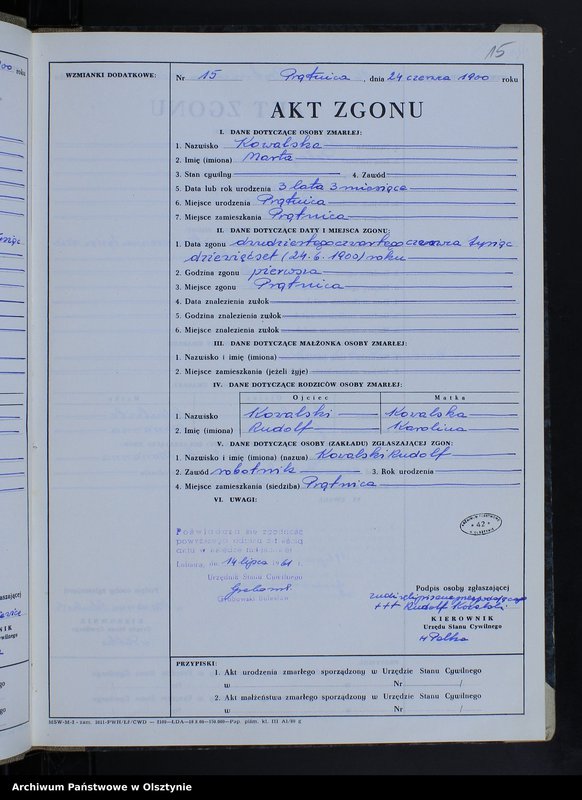 15
WZMIANKI DODATKOWE:
Nr 15 Prątnica, dnia 24 czerwca 1900 roku
AKT ZGONU
I. DANE DOTYCZĄCE OSOBY ZMARŁEJ:
1. Nazwisko Kowalska
2. Imię (imiona) Marta
3. Stan cywilny 4. Zawód
5. Data lub rok urodzenia 3 lata 3 miesiące
6. Miejsce urodzenia Prątnica
7. Miejsce zamieszkania Prątnica
II. DANE DOTYCZĄCE DATY I MIEJSCA ZGONU:
1. Data zgonu dwudziestego czwartego czerwca tysiąc
dziewięćset (24.6.1900) roku
2. Godzina zgonu pierwsza
3. Miejsce zgonu Prątnica
4. Data znalezienia zwłok
5. Godzina znalezienia zwłok
6. Miejsce znalezienia zwłok
III. DANE DOTYCZĄCE MAŁŻONKA OSOBY ZMARŁEJ:
1. Nazwisko i imię (imiona)
2. Miejsce zamieszkania (jeżeli żyje)
IV. DANE DOTYCZĄCE RODZICÓW OSOBY ZMARŁEJ:
Ojciec Matka
1. Nazwisko Kowalski Kowalska
2. Imię (imiona) Rudolf Karolina
V. DANE DOTYCZĄCE OSOBY (ZAKŁADU) ZGŁASZAJĄCEJ ZGON:
1. Nazwisko i imię (imiona) (nazwa) Kowalski Rudolf
2. Zawód robotnik 3. Rok urodzenia
4. Miejsce zamieszkania (siedziba) Prątnica
VI. UWAGI:
42
Poświadcza się zgodność
powyższego odpisu z treścią
aktu w
dn. 14 lipca 1961 r.
Urzędnik Stanu Cywilnego
Podpis osoby zgłaszającej
+++ Rudolf
KIEROWNIK
Urzędu Stanu Cywilnego
PRZYPISKI:
1. Akt urodzenia zmarłego sporządzony w Urzędzie Stanu Cywilnego
w Nr /
2. Akt małżeństwa zmarłego sporządzony w Urzędzie Stanu Cywilnego
w Nr /
Archiwum Państwowe w Olsztynie